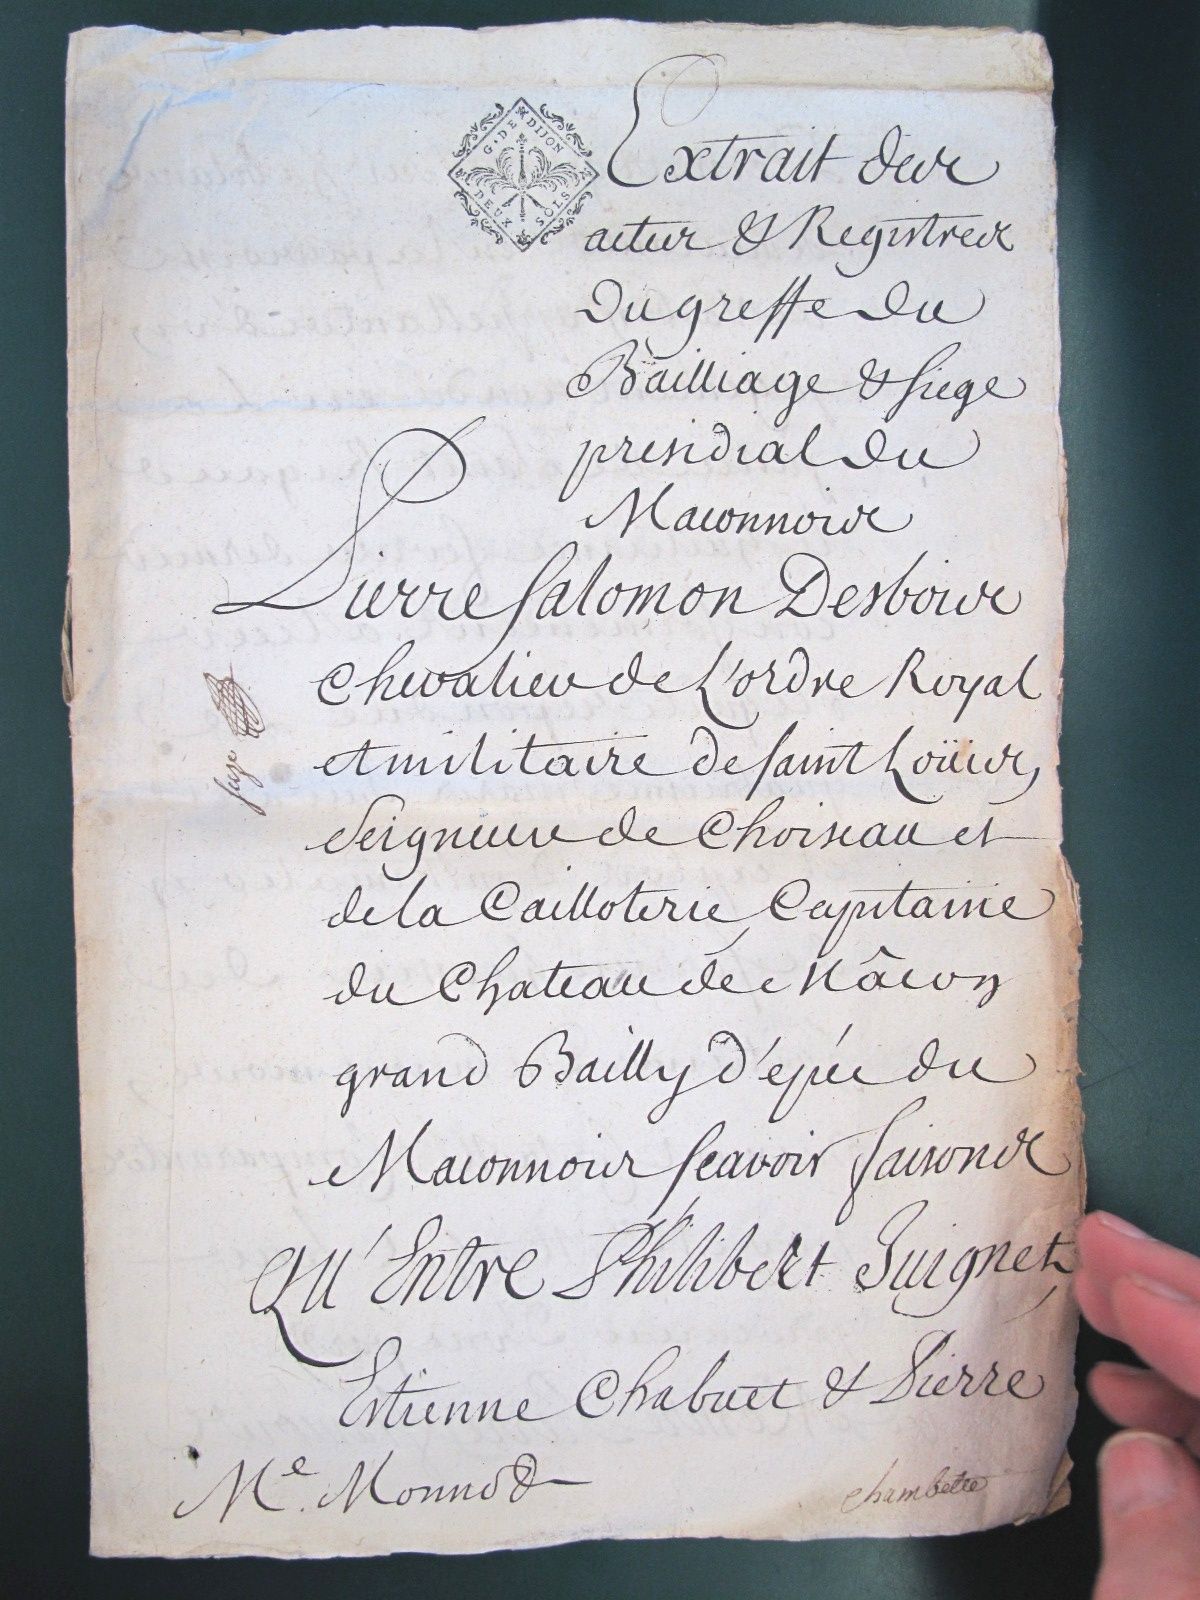 G. DE DIJON
DEUX SOLS
Extrait des
actes & Registres
Du greffe du
Bailliage & siege
presidial du
Maconnois
Pierre salomon Desbois
chevalier de L'ordre Royal
et militaire de saint Loüis,
seigneur de Choiseau et
de la Cailloterie Capitaine
du Chateau de Mâcon
grand Bailly d'epée du
Maconnois scavoir faisons
Qu'Entre Philibert Guignet
Estienne Chabuet & Pierre
Me. Monnod
chambette